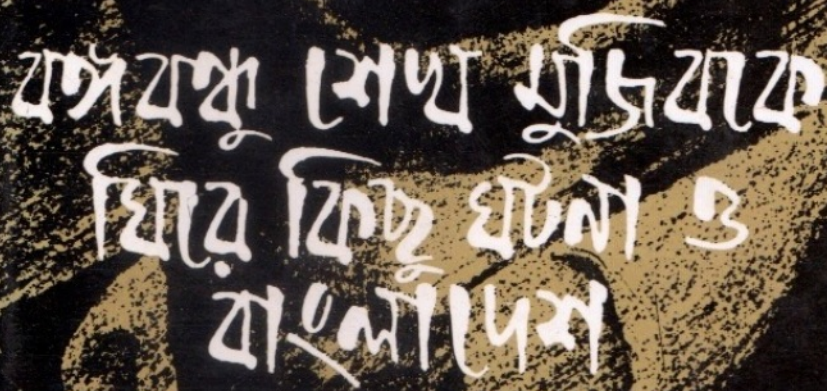 বঙ্গবন্ধু শেখ মুজিবকে
ঘিরে কিছু ঘটনা ও
বাংলাদেশ